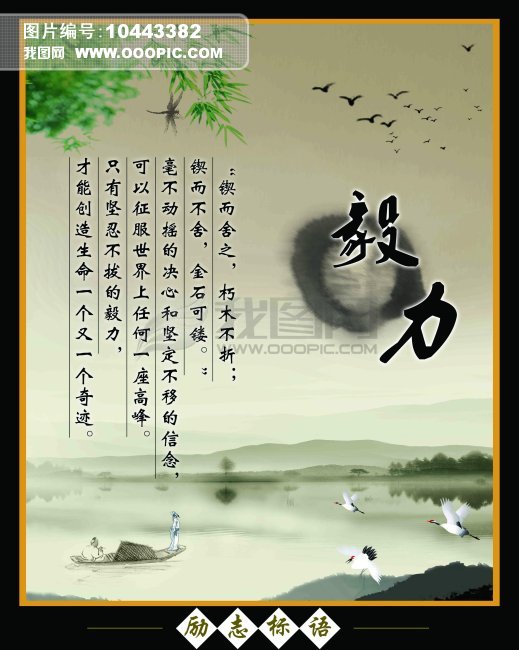 图片编号:10443382
我图网 www.ooopic.com
毅力
“锲而舍之，朽木不折；
锲而不舍，金石可镂。”
毫不动摇的决心和坚定不移的信念，
可以征服世界上任何一座高峰。
只有坚忍不拔的毅力，
才能创造生命一个又一个奇迹。
我图网
WWW.OOOPIC.COM
励志标语